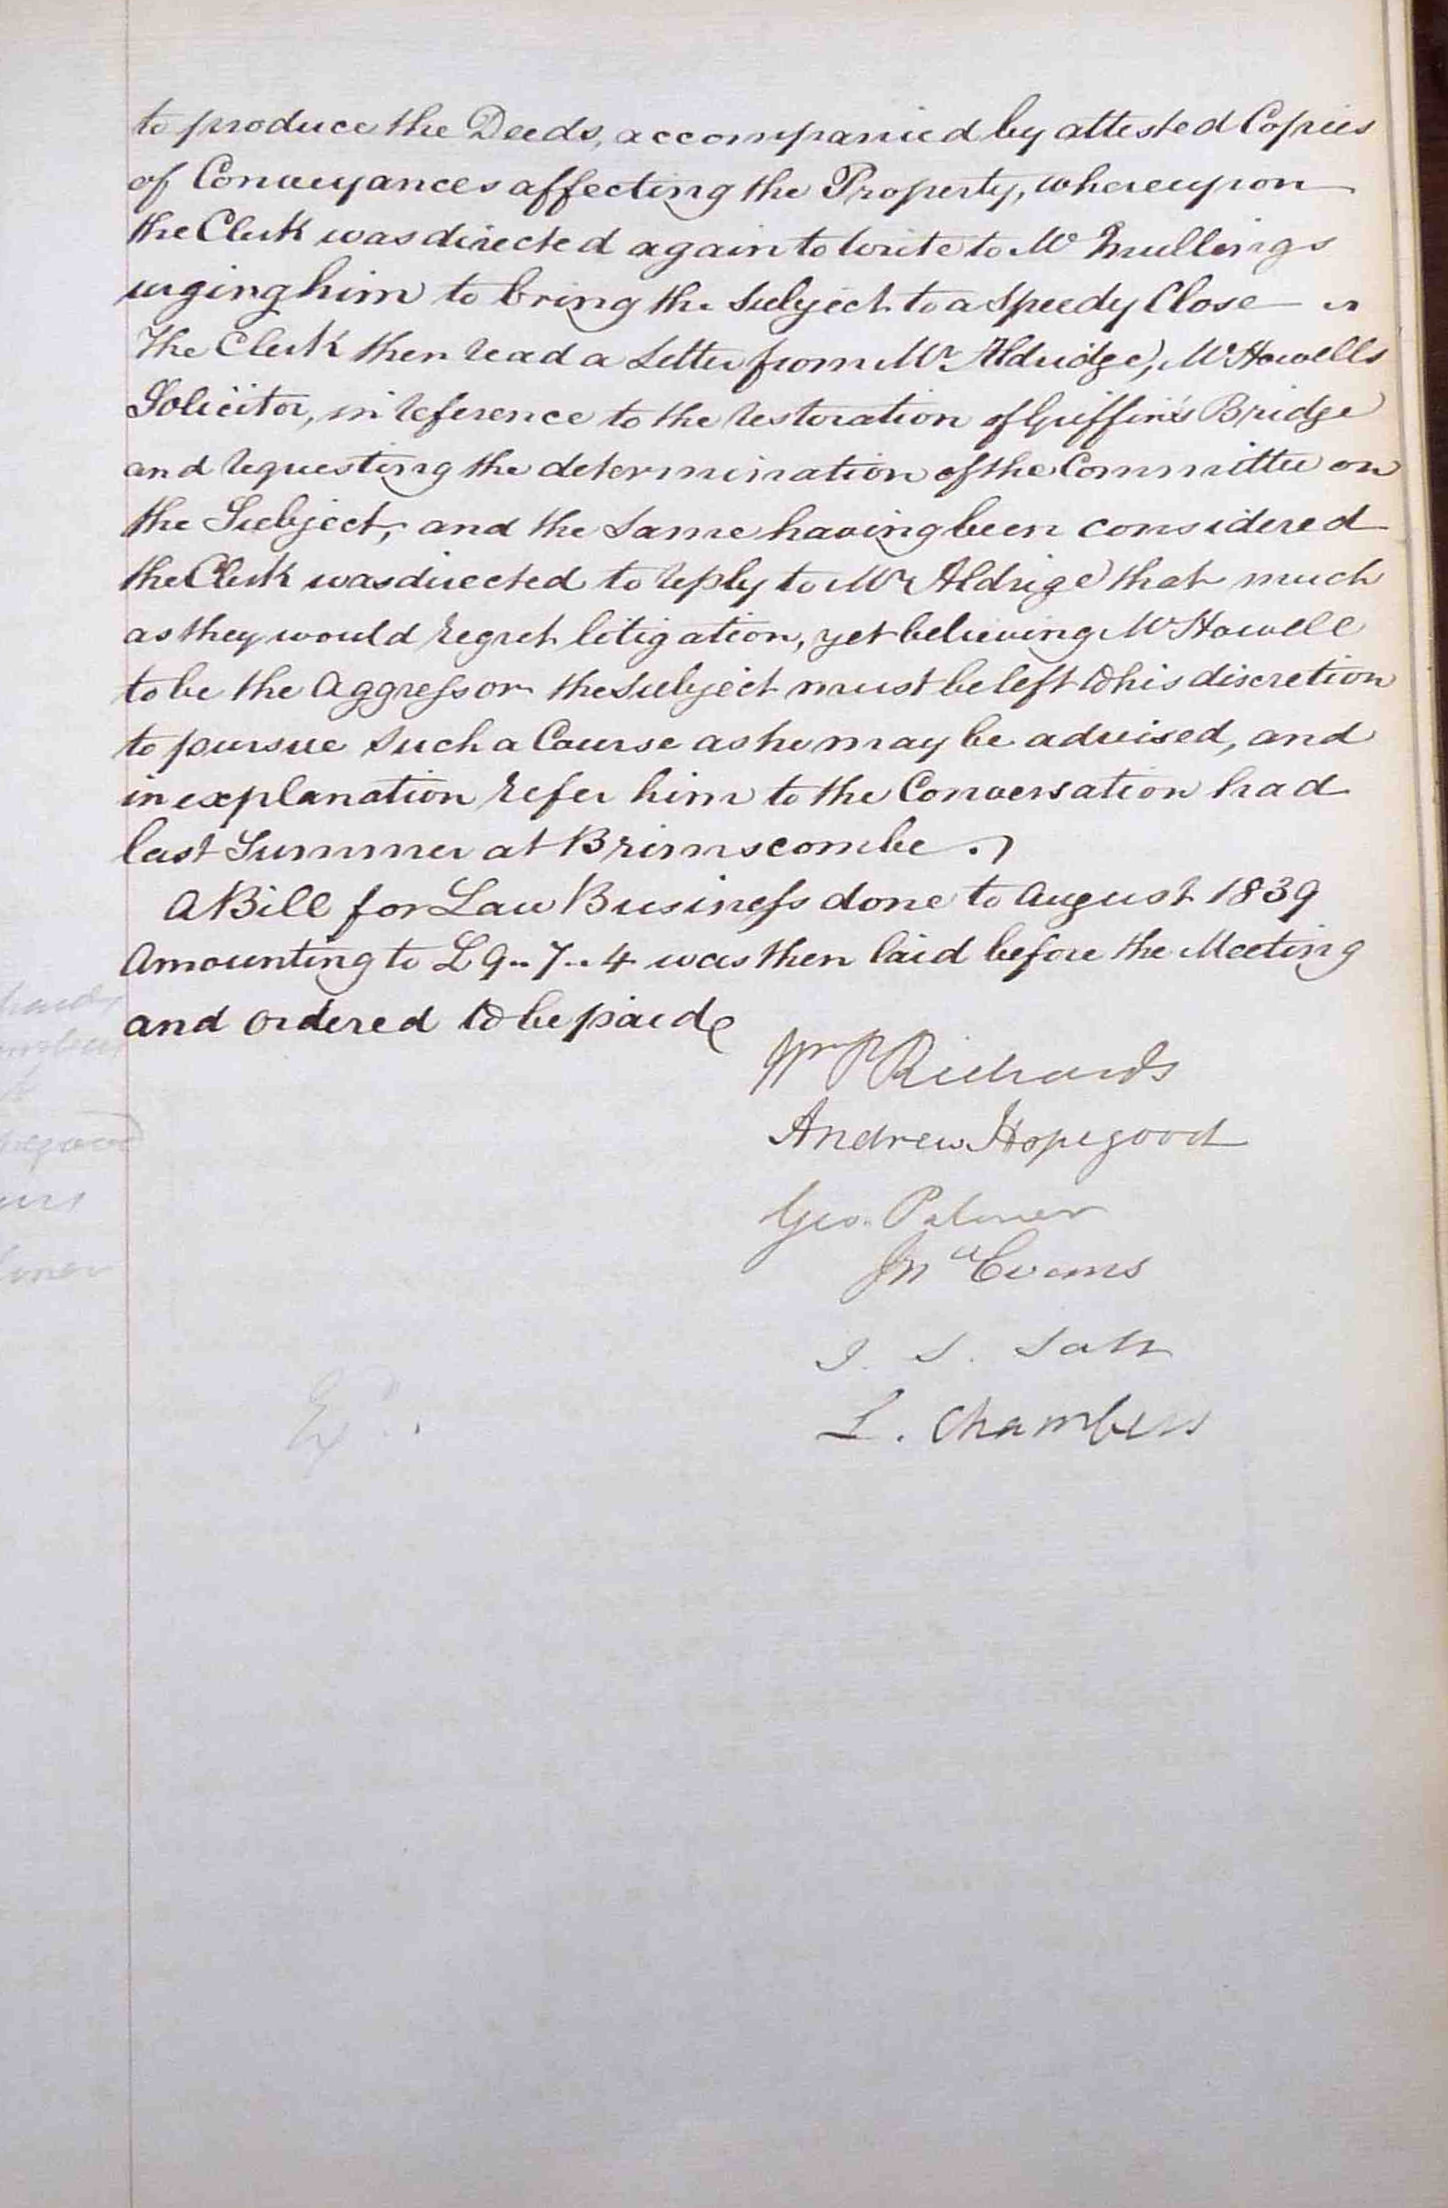 to produce the Deeds, accompanied by attested Copies
of Conveyances affecting the Property, whereupon
the Clerk was directed again to write to Mr Mullings
urging him to bring the Subject to a Speedy Close
The Clerk then read a Letter from Mr Aldridge, Mr Howells
Solicitor, in reference to the restoration of Griffin's Bridge
and requesting the determination of the Committee on
the Subject, and the Same having been considered
the Clerk was directed to reply to Mr Aldrige that much
as they would regret litigation, yet believing Mr Howell
to be the Aggressor the Subject must be left to his discretion
to pursue Such a Course as he may be advised, and
in explanation refer him to the Conversation had
last Summer at Brimscombe.
A Bill for Law Business done to August 1839
Amounting to £9..7..4 was then laid before the Meeting
and ordered to be paid
Wm P Richards
Andrew Hopegood
Geo. Palmer
Jn Evans
J. S. Salt
L. Chambers